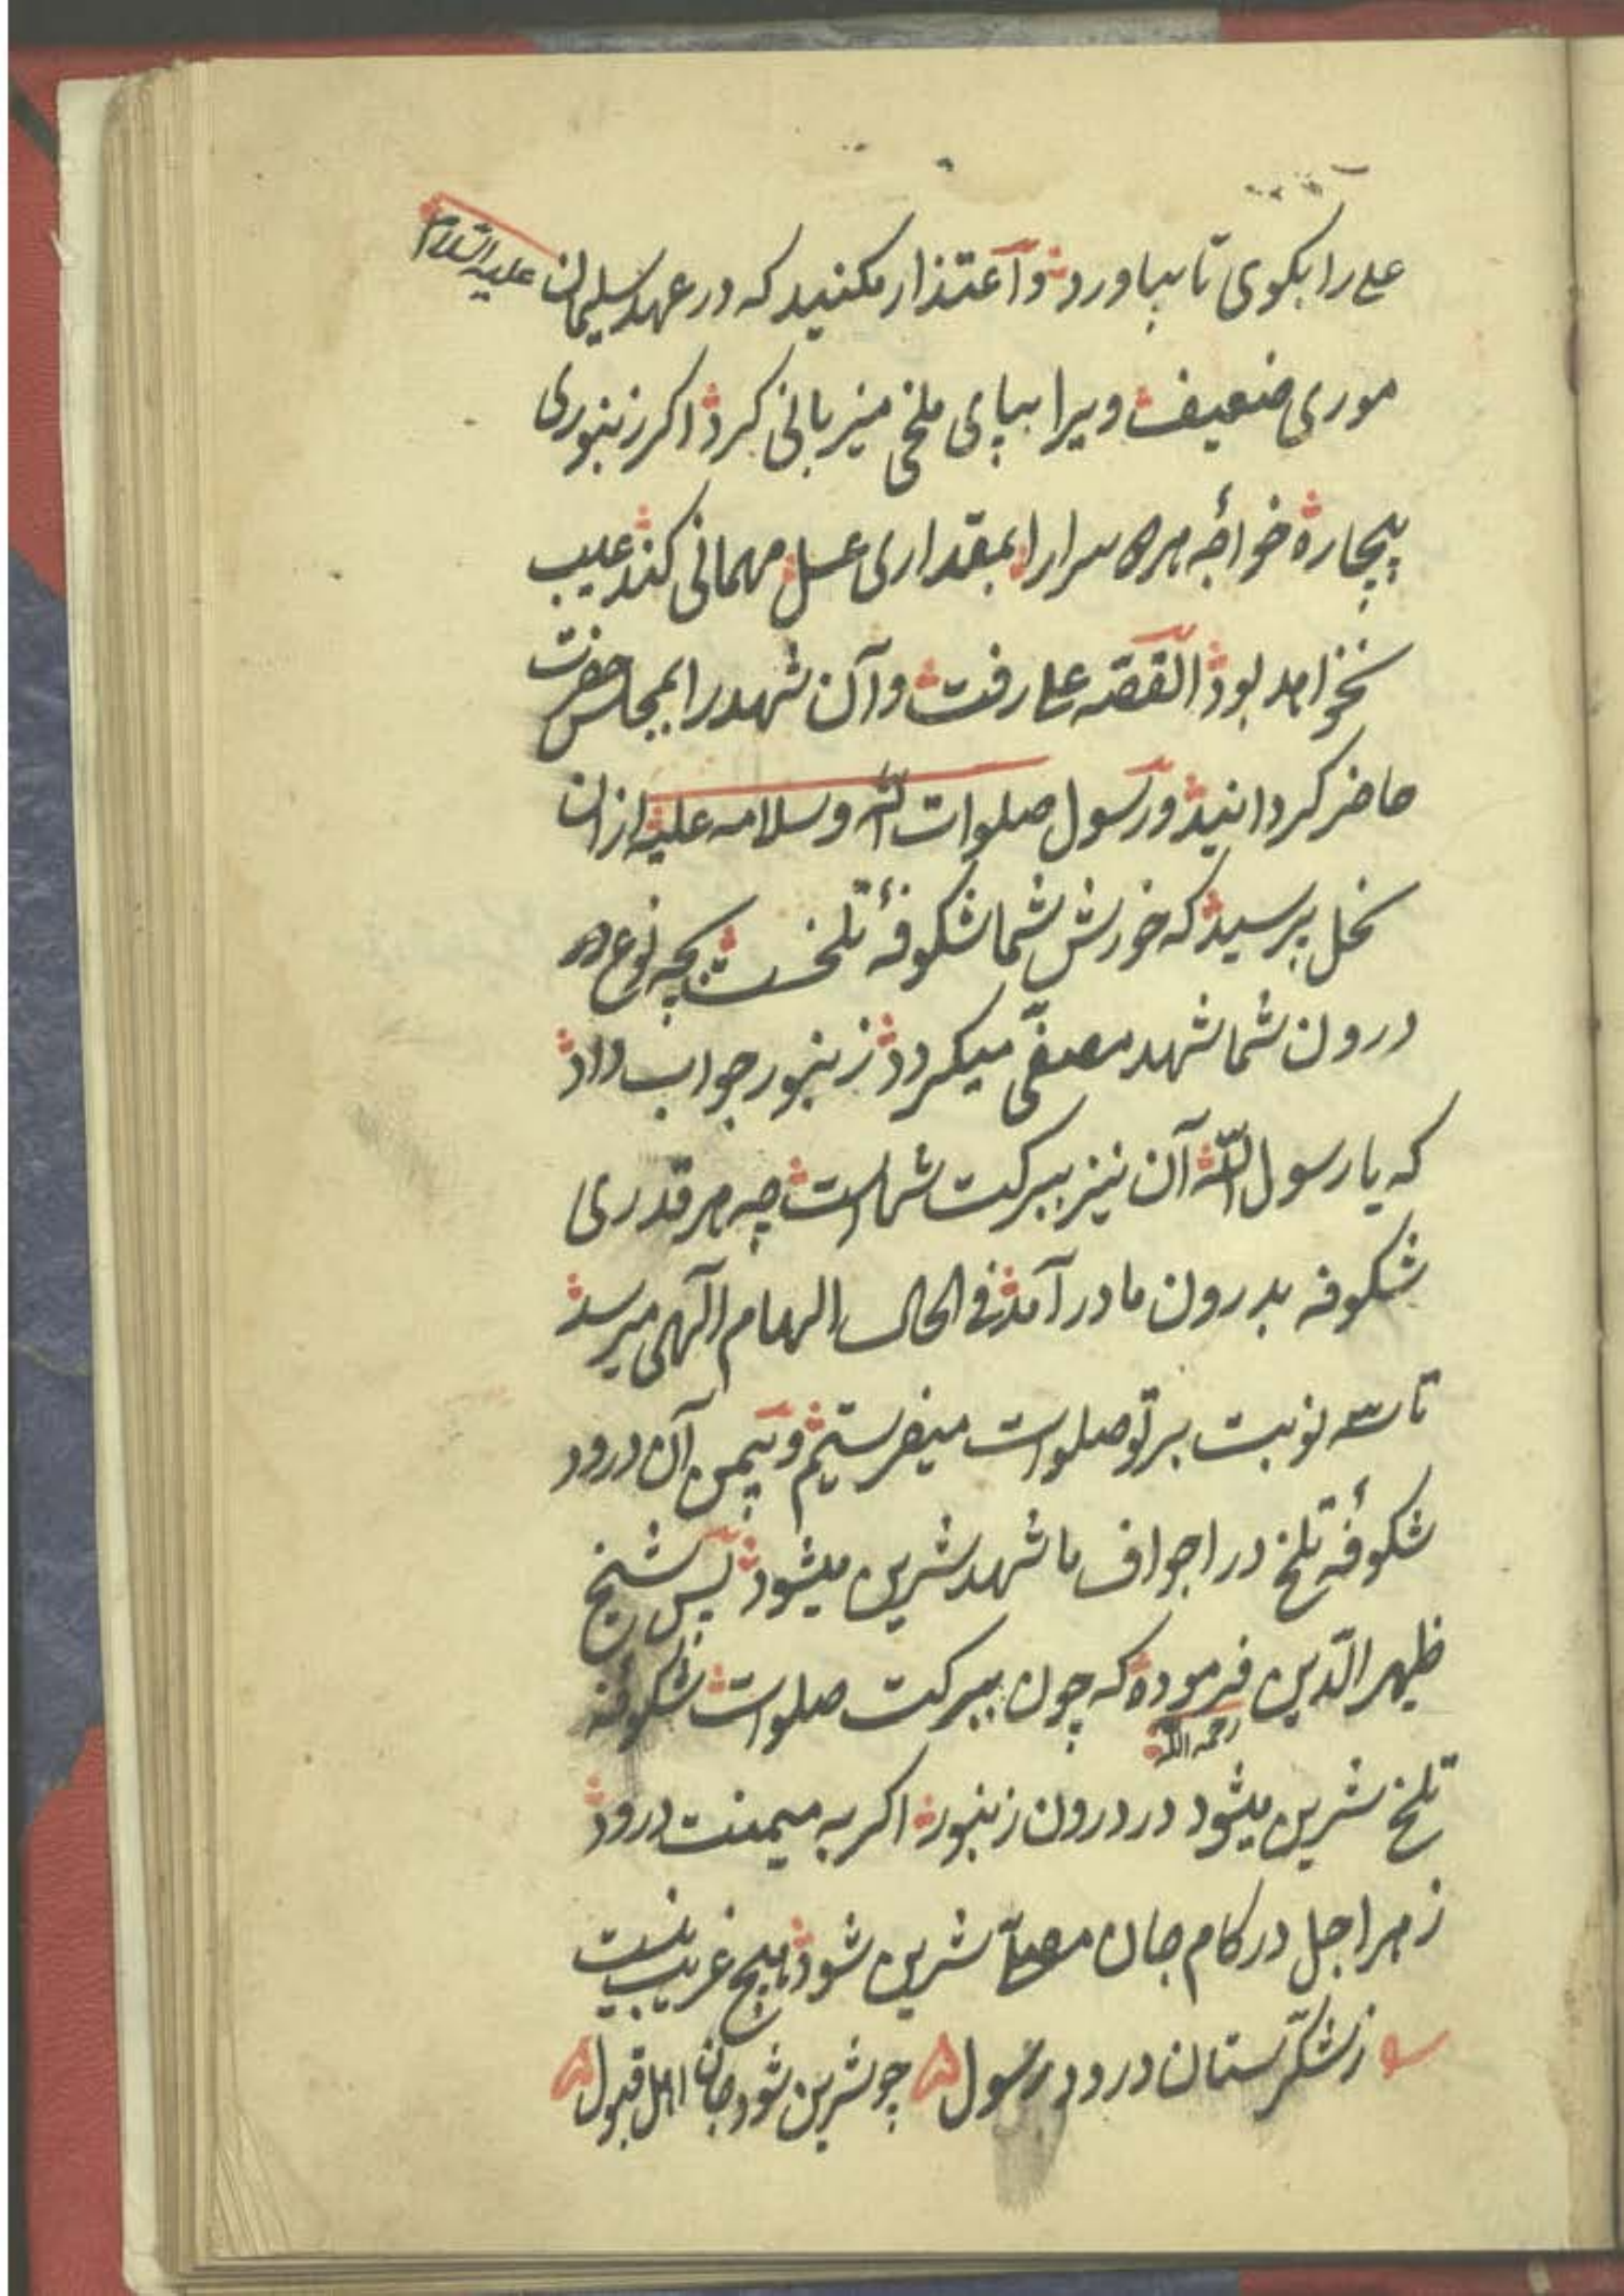 علی را بکوی تا بیاورد و اعتذار مکنید که در عهد سلیمان علیه السلام
موری ضعیف ویرا بپای ملخی میزبانی کرد اکر زنبوری
بیچاره خواجه هر دو سرا را بمقداری عسل مهمانی کند عیب
نخواهد بود القصه علی رفت و آن شهد را بمجلس حضرت
حاضر کردانید و رسول صلوات الله و سلامه علیه ازان
نحل پرسید که خورش شما شکوفهٔ تلخست بچه نوع در
درون شما شهد مصفّی میکردد زنبور جواب داد
که یا رسول الله آن نیز ببرکت شماست چه هر قدری
شکوفه بدرون ما در آمد فی الحال الهام الهی میرسد
تا سه نوبت بر تو صلوات میفرستیم و بیمن آن درود
شکوفهٔ تلخ در اجواف ما شهد شیرین میشود پس شیخ
ظهیر الدّین رحمه الله فرموده که چون ببرکت صلوات شکوفهٔ
تلخ شیرین میشود در درون زنبور اکر به میمنت درود
زهر اجل در کام جان شیرین شود هیچ غریب نیست
ز شکّرستان درود رسول چو شیرین شود جان اهل قبول